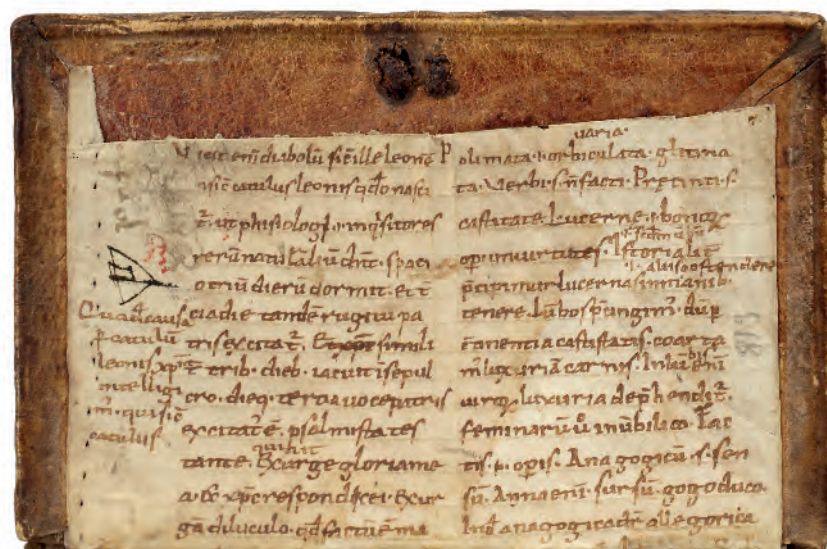 enī diabolū sic ille leonē
catulus leonis qdo nasci
t̄. ut phisiologi .i. inqisitores
rerū naturaliū dnt. spaci
o triū dierū dormit. et t̄
cia die tandē rugitu pa
tris excitat̄. Et xpc simili
t̄ trib. dieb. iacuit ī sepul
cro. dieq. tercia voce patris
excitat̄ ē. psalmista tes
tante. Exurge gloria me
a. et xpc respondit ei. Exur
gā diluculo. qd factū ē ma
Qua d causa
p catulū
leonis xpc
intelligi
catulus
varia.
Polimata .i. orbiculata. glutina
ta. Verbi. s. facti. Precincti. s.
castitate. Lucerne .i. bonoꝝ
opum virtutes. Istorialit̄
pcipimur lucernas in manib.
tenere. Lūbos pcingim. dū p
tinentia castitatis. coarta
m luxuriā carnis. In lūbis enī
viroꝝ luxuria dephendit̄.
feminarū ū in ūbilico. Fac
tis. i. opis. Anagogicū. s. sen
sū. Anna enī. sursū. gogo duco.
Ind anagogica dr allegorica